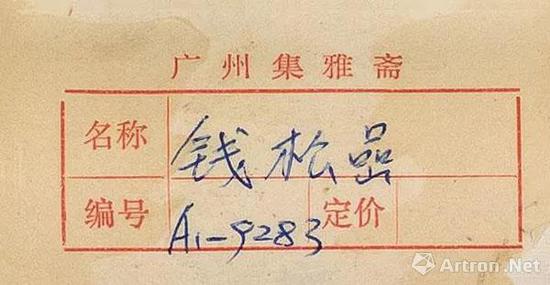 广州集雅斋
名称 钱松嵒
编号 A1-9283 定价
Artron.Net